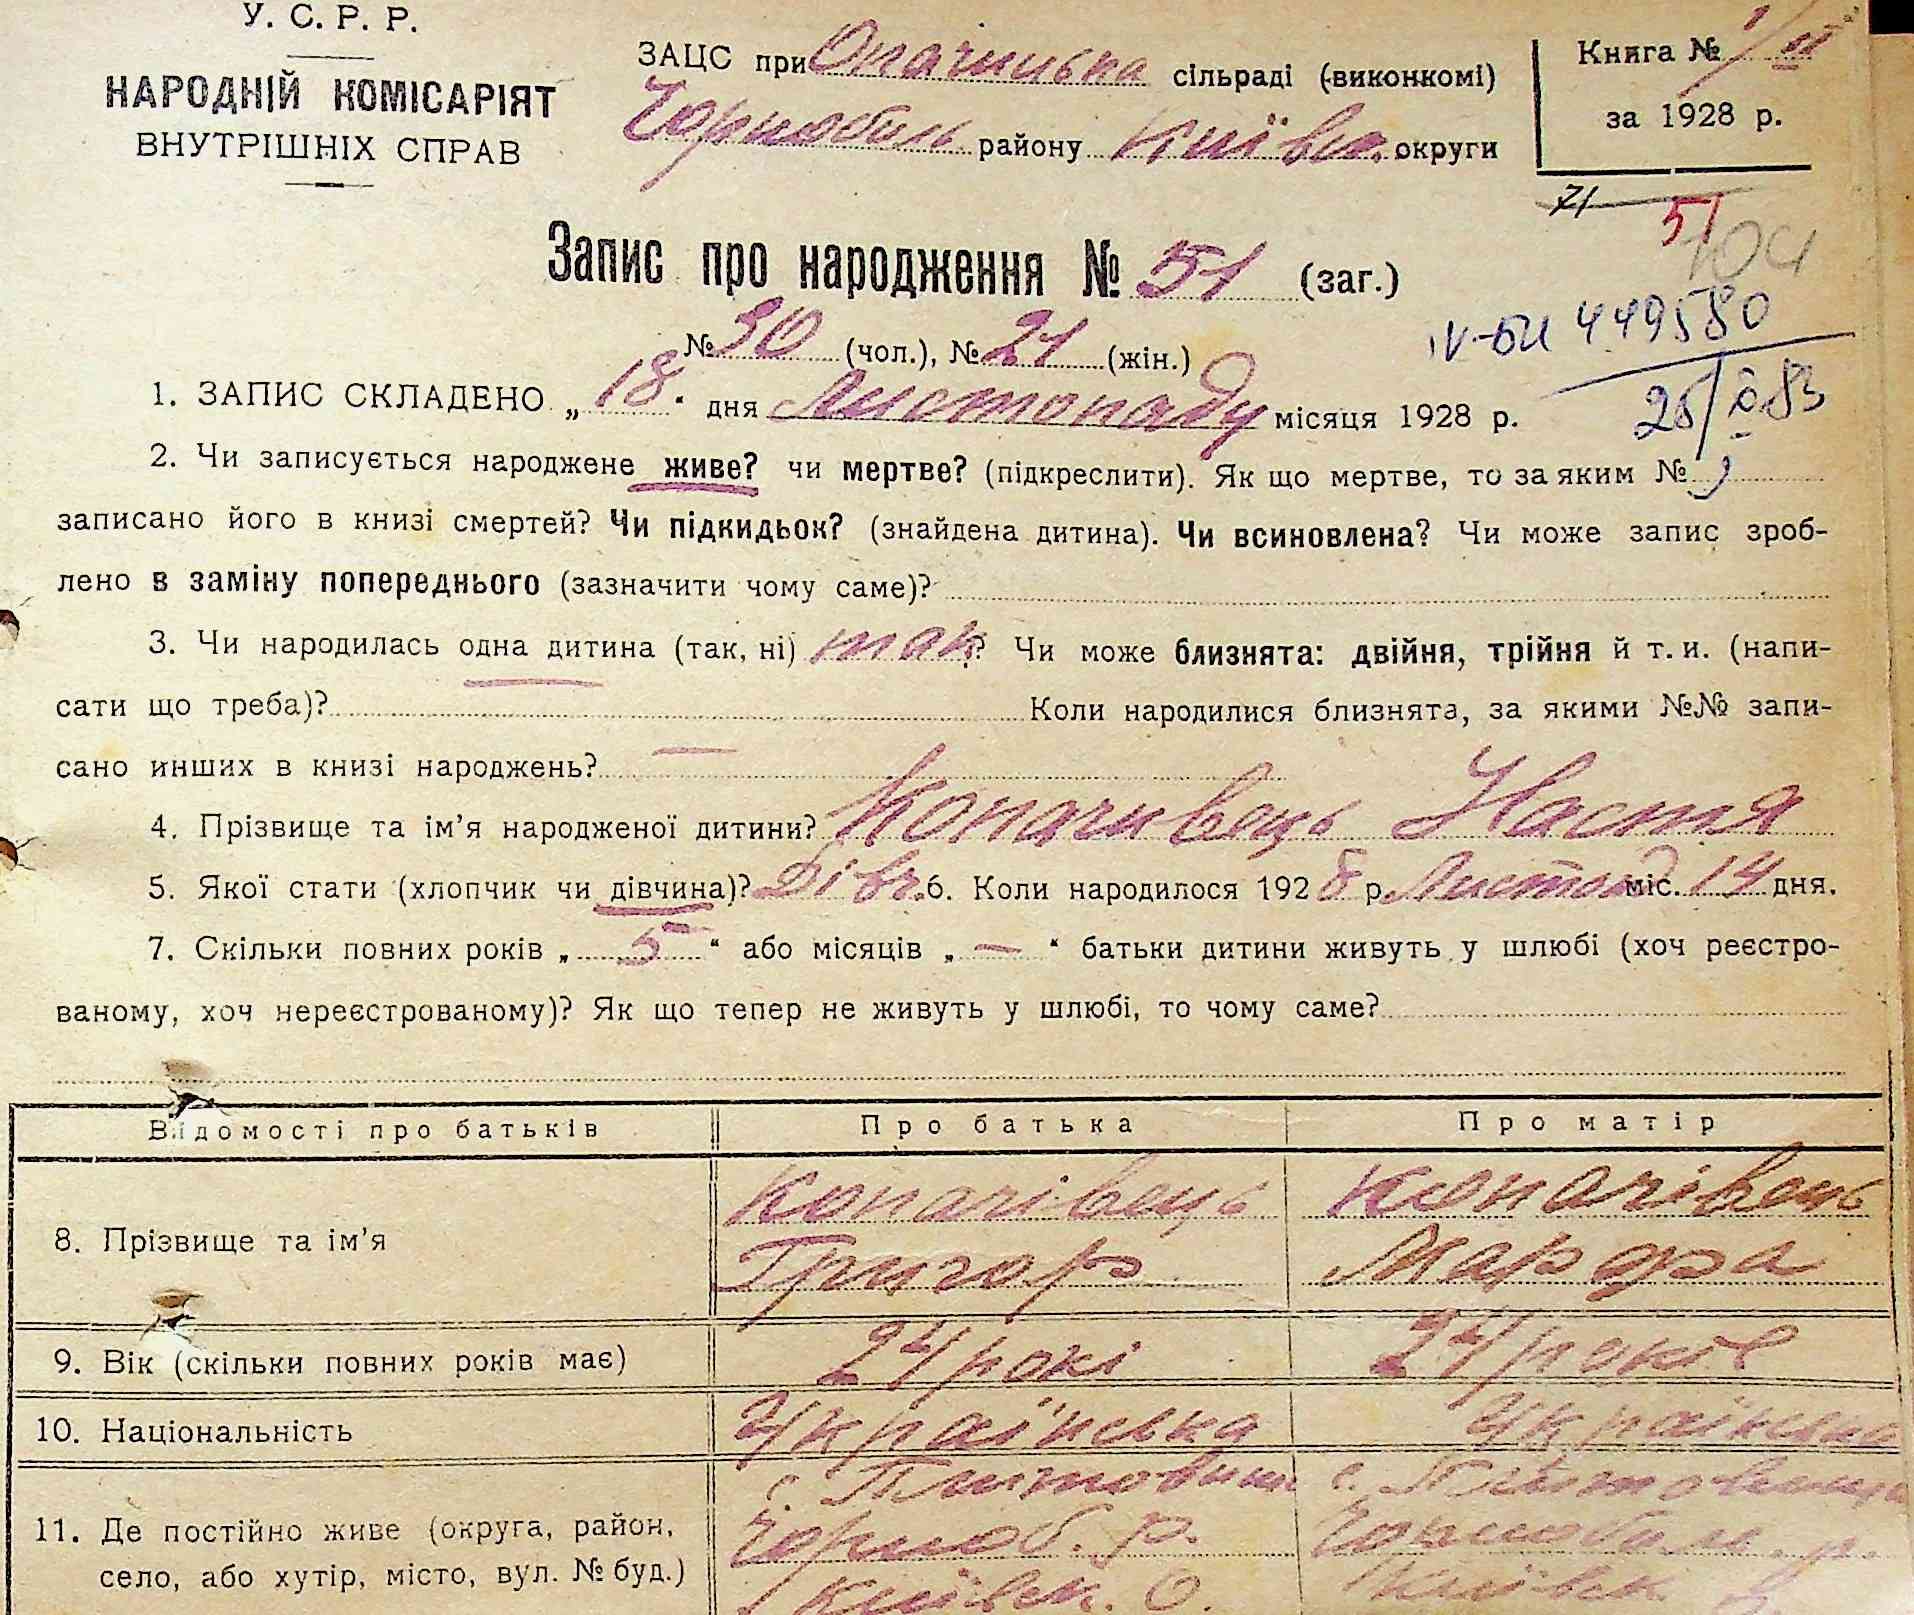 У. С. Р. Р.
НАРОДНІЙ КОМІСАРІЯТ
ВНУТРІШНІХ СПРАВ
ЗАЦС при Опачицька сільраді (виконкомі)
Чорнобиль району Київськ. округи
Книга № 1/II
за 1928 р.
71
51
104
Запис про народження № 51 (заг.)
№ 30 (чол.), № 21 (жін.)
IV-БИ 449580
25/X 83
1. ЗАПИС СКЛАДЕНО „18“ дня Листопаду місяця 1928 р.
2. Чи записується народжене живе? чи мертве? (підкреслити). Як що мертве, то за яким №
записано його в книзі смертей? Чи підкидьок? (знайдена дитина). Чи всиновлена? Чи може запис зроб-
лено в заміну попереднього (зазначити чому саме)?
3. Чи народилась одна дитина (так, ні) так? Чи може близнята: двійня, трійня й т. и. (напи-
сати що треба)? Коли народилися близнята, за якими №№ запи-
сано инших в книзі народжень? —
4. Прізвище та ім’я народженої дитини? Копачивець Настя
5. Якої стати (хлопчик чи дівчина)? Дівч. 6. Коли народилося 1928 р. Листопад міс. 14 дня.
7. Скільки повних років „5“ або місяців „—“ батьки дитини живуть у шлюбі (хоч реєстро-
ваному, хоч нереєстрованому)? Як що тепер не живуть у шлюбі, то чому саме?
Відомості про батьків Про батька Про матір
8. Прізвище та ім’я Копачівець Григор Копачівець Марфа
9. Вік (скільки повних років має) 24 рокі 24 років
10. Національність Українська Українська
11. Де постійно живе (округа, район,
село, або хутір, місто, вул. № буд.)
с. Плютовищ
Чорноб. р.
Київськ. О.
с. Плютовище
Чорнобиль. р.
Київськ